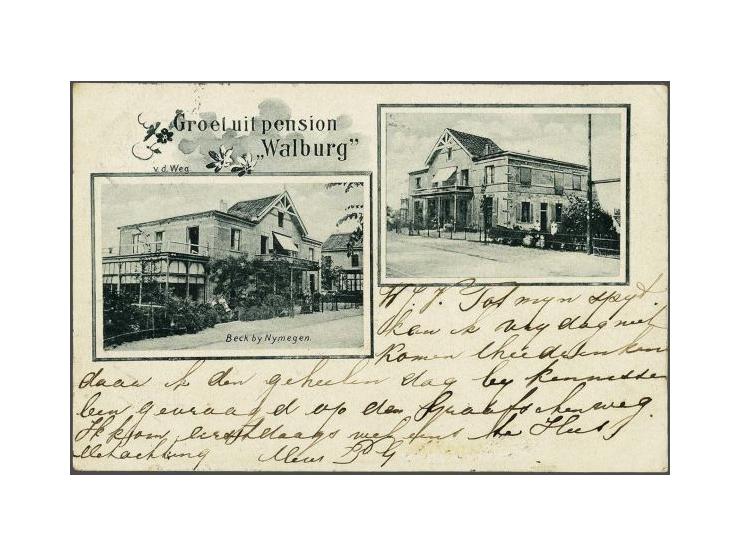 Groet uit pension
„Walburg”
v. d. Weg
Beck by Nymegen.
Tot myn spyt
kan ik vrydag niet
komen theedrinken
daar ik den geheelen dag by kennissen
ben gevraagd op den Graafschenweg.
Ik kom eerstdaags wel eens te Huis
Metachting Mevr P G